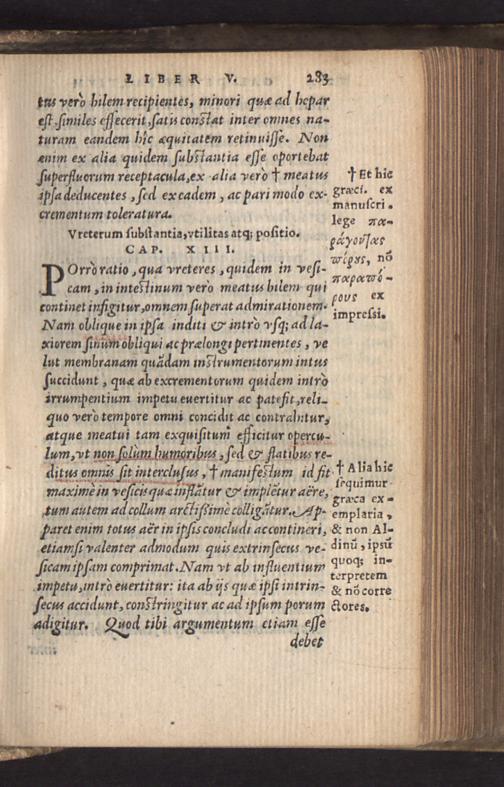 LIBER V. 283
tus verò bilem recipientes, minori quæ ad hepar
est, similes effecerit, satis constat inter omnes na-
turam eandem hîc æquitatem retinuisse. Non
enim ex alia quidem substantia esse oportebat
superfluorum receptacula, ex alia verò † meatus
ipsa deducentes, sed ex eadem, ac pari modo ex-
crementum toleratura.
Vreterum substantia, vtilitas atq; positio.
CAP. XIII.
POrrò ratio, qua vreteres, quidem in vesi-
cam, in intestinum verò meatus bilem qui
continet infigitur, omnem superat admirationem.
Nam oblique in ipsa inditi & intrò vsq; ad la-
xiorem sinum obliqui ac prælongi pertinentes, ve
lut membranam quādam instrumentorum intus
succidunt, quæ ab excrementorum quidem intrò
irrumpentium impetu euertitur ac patefit, reli-
quo verò tempore omni concidit ac contrahitur,
atque meatui tam exquisitum efficitur opercu-
lum, vt non solùm humoribus, sed & flatibus re-
ditus omnis sit interclusus, † manifestum id fit
maximè in vesicis quæ inflātur & implētur aëre,
tum autem ad collum arctißimè colligātur. Ap-
paret enim totus aër in ipsis concludi ac contineri,
etiamsi valenter admodum quis extrinsecus ve-
sicam ipsam comprimat. Nam vt ab influentium
impetu, intrò euertitur: ita ab ijs quæ ipsi intrin-
secus accidunt, constringitur ac ad ipsum porum
adigitur. Quod tibi argumentum etiam esse
debet
† Et hic
græci. ex
manuscri.
lege πα-
ράγουσας
πόρους, nō
παραπό-
ρους ex
impressi.
† Alia hic
sequimur
græca ex-
emplaria,
& non Al-
dinū, ipsū
quoq; in-
terpretem
& nō corre
ctores.